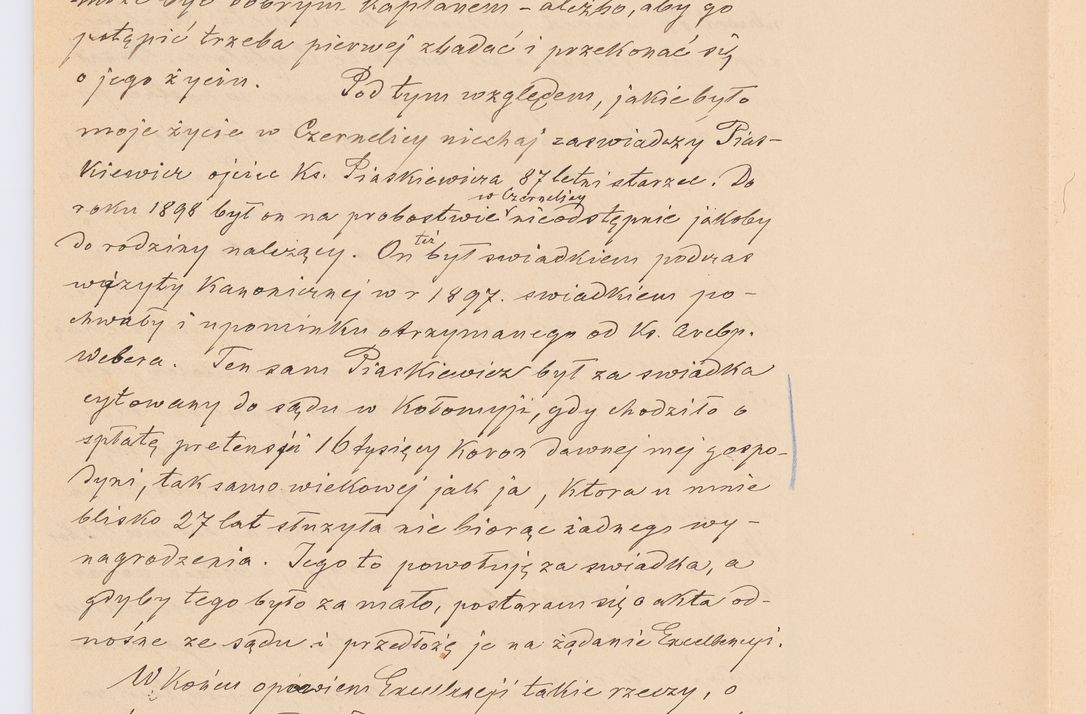 może być dobrym kapłanem – ależ bo, aby go
potępić trzeba pierwej zbadać i przekonać się
o jego życiu. Pod tym względem, jakie było
moje życie w Czernelicy niechaj zaswiadczy Pias-
kiewicz ojciec Ks. Piaskiewicza 87 letni starzec. Do
roku 1898 był on na probostwie w Czernelicy nieodstępnie jakoby
do rodziny należący. On też był swiadkiem podczas
wizyty Kanonicznej w r 1897. swiadkiem po-
chwały i upominku otrzymanego od Ks. Arcbp.
Webera. Ten sam Piaskiewicz był za swiadka
cytowany do sądu w Kołomyji, gdy chodziło o
spłatę pretensji 16 tysięcy Koron dawnej mej gospo-
dyni, tak samo wiekowej jak ja, ktora u mnie
blisko 27 lat służyła nie biorąc żadnego wy-
nagrodzenia. Jego to powołuję za swiadka, a
gdyby tego było za mało, postaram się o akta od-
nośne ze sądu i przedłożę je na żądanie Excellencyi.
W Końcu opowiem Excellencyi takie rzeczy, o